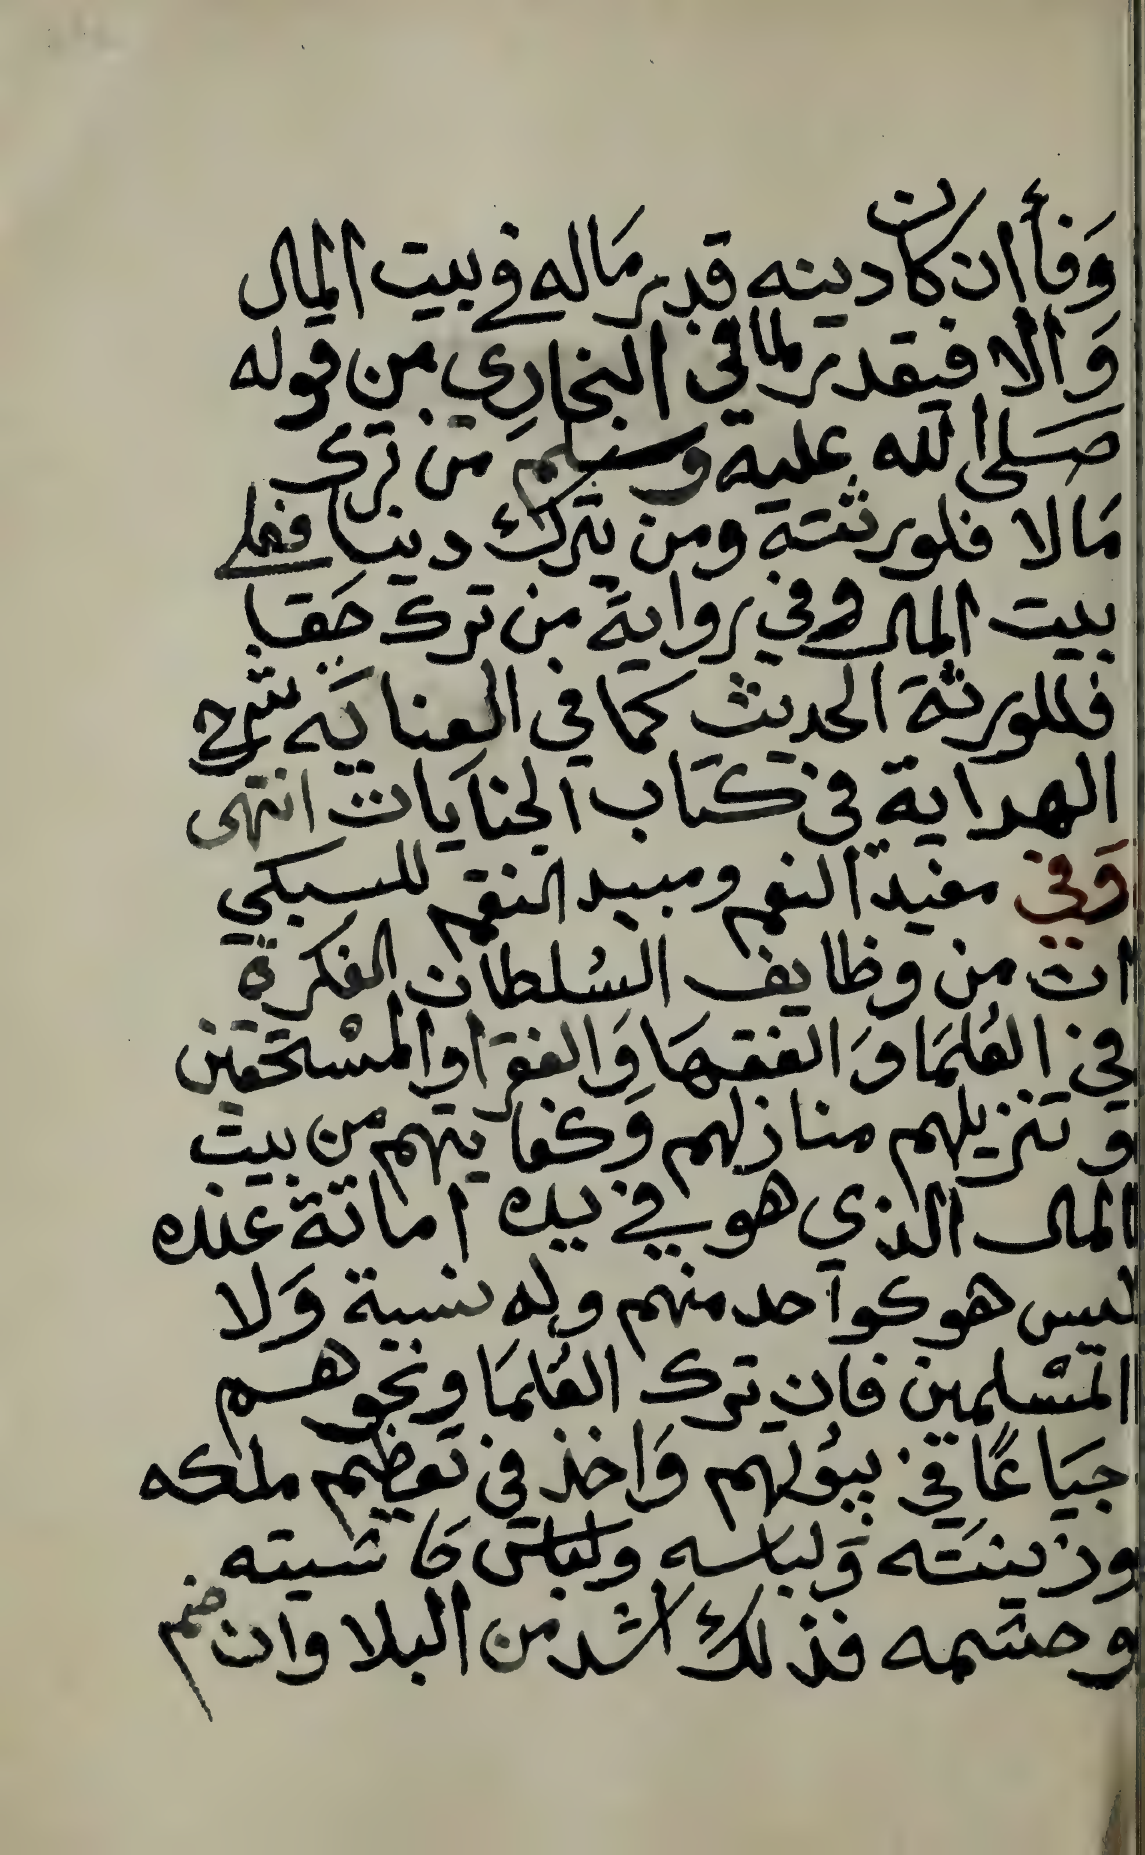 وَفأ ان كان دينه قدر مَاله في بيت المال
وَالا فيقدر لما في البخاري من قوله
صَلى الله عليه وسلم من ترك
مَالا فلورثته ومن ترك دينا فعلى
بيت المال وفي رواية من ترك حَقا
فللورثة الحديث كما في العنايَه شرح
الهداية في كتاب الجنايات انتهى
وَفي مفيد النعم ومبيد النقم للسبكي
ان من وظايف السُلطان الفكرة
في العُلمَا وَالفقهَا وَالفقرا والمسْتحقين
وتنزيلهم منازلهم وَكفايتهم من بيت
المال الذي هو في يده امانة عنده
ليس هو كواحد منهم وله نسبة وَلا
المسْلمين فان ترك العُلمَا ونحوهم
جيَاعًا في بيُولهم وَاخذ في تعظيم ملكه
وزينته وَلباسه ولباس حَاشيته
وحشمه فذلك اشد من البلا وان ضم